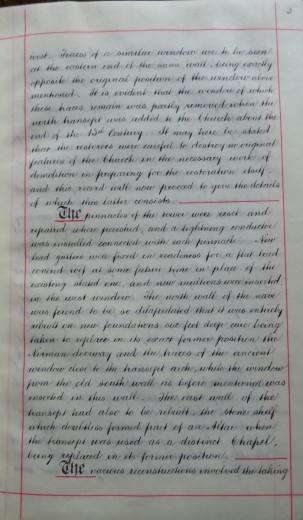 2
west. Traces of a similar window are to be seen
at the eastern end of the same wall, being exactly
opposite the original position of the window above
mentioned. It is evident that the window of which
these traces remain was partly removed when the
north transept was added to the Church about the
end of the 13th Century. It may here be stated
that the restorers were careful to destroy no original
features of the Church in the necessary work of
demolition in preparing for the restoration itself,
and this record will now proceed to give the details
of which this latter consists.
The pinnacles of the tower were reset and
repaired where perished, and a lightning conductor
was installed connected with each pinnacle. New
lead gutters were fixed in readiness for a flat lead
covered roof at some future time in place of the
existing slated one, and new mullions were inserted
in the west window. The north wall of the nave
was found to be so dilapidated that it was entirely
rebuilt on new foundations six feet deep care being
taken to replace in its exact former position the
Norman doorway and the traces of the ancient
window close to the transept arch, while the window
from the old south wall as before mentioned was
inserted in this wall. The east wall of the
transept had also to be rebuilt, the stone shelf
which doubtless formed part of an Altar when
the transept was used as a distinct Chapel,
being replaced in its former position.
The various reconstructions involved the taking